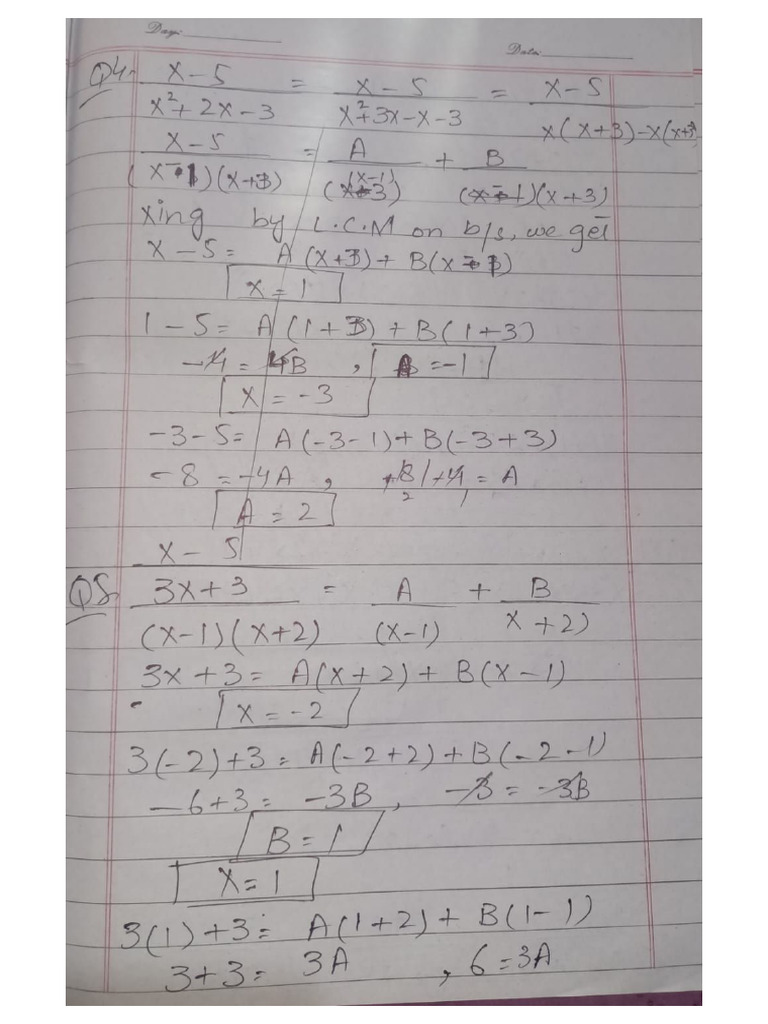 Day: Date:
Q4. x-5/x²+2x-3 = x-5/x²+3x-x-3 = x-5/x(x+3)-x(x+3)
x-5/(x-1)(x+3) = A/(x-1) + B/(x-1)(x+3)
xing by L.C.M on b/s, we get
x-5= A(x+3)+ B(x-1)
x=1
1-5= A(1+3)+B(1+3)
-4=4B, A=-1
x=-3
-3-5= A(-3-1)+B(-3+3)
-8=-4A, +8/+4=A
A=2
x-5
Q5. 3x+3/(x-1)(x+2) = A/(x-1) + B/x+2)
3x+3= A(x+2)+B(x-1)
x=-2
3(-2)+3= A(-2+2)+B(-2-1)
-6+3= -3B, -3=-3B
B=1
x=1
3(1)+3= A(1+2)+B(1-1)
3+3= 3A, 6=3A